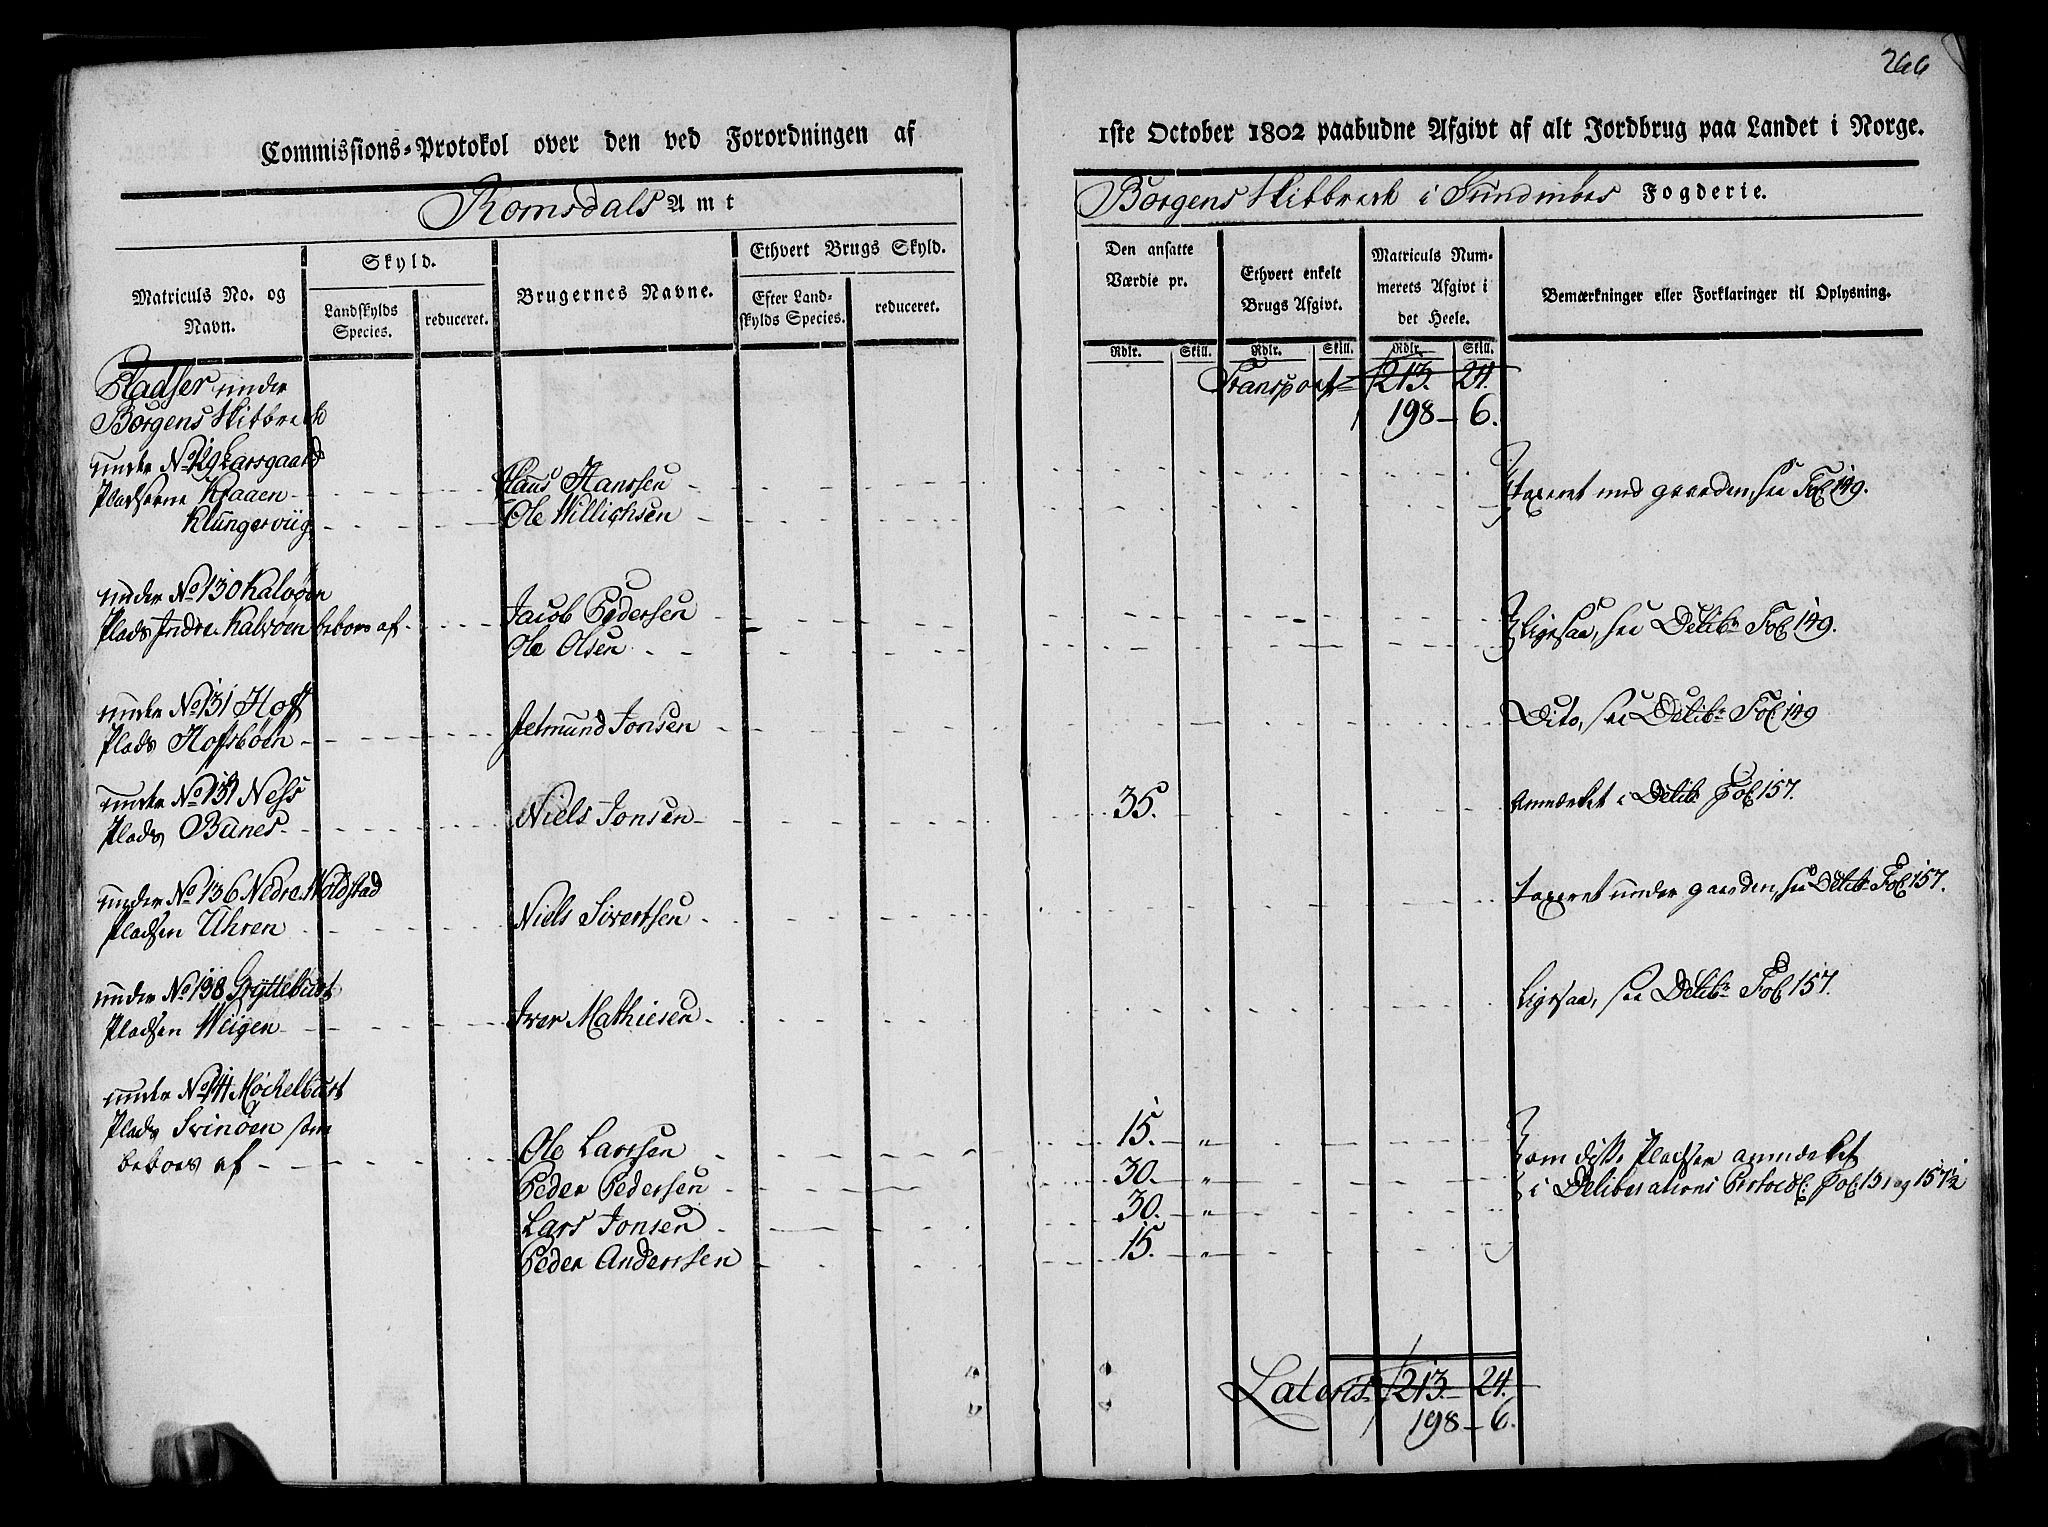 266
Commissions-Protokol over den ved Forordningen af
1ste October 1802 paabudne Afgivt af alt Jordbrug paa Landet i Norge.
Romsdals Amt
Borgens Skibbrede i Fogderie.
Matriculs No. og Navn.
Skyld.
Landskylds Species.
reduceret.
Brugernes Navne.
Ethvert Brugs Skyld.
Efter Landskylds Species.
reduceret.
Den ansatte Værdie pr.
Ethvert enkelt Brugs Afgivt.
Matriculs Nummerets Afgivt i det Heele.
Bemærkninger eller Forklaringer til Oplysning.
Rdlr. Skill. Rdlr. Skill. Rdlr. Skill.
Pladser under
Transport 213. 24.
Borgens Skibbrede
198 - 6.
under No 129 Larsgaard
Pladserne Kraaen Claus Hanssen taxeret med gaarden, see Fol 149.
Klungerviig Ole Willichsen
under No 130 Kalvøen
Plads Indre Kalvøen beboes af Jacob Pedersen Ligesaa, see Delibr Fol 149.
Ole Olsen
under No 131 Hoff
Plads Hofsbøen Jetmund Jonsen Dito, see Delibr Fol 149
under No 134 Ness
Plads Bunes Niels Jonsen 35. anmærket i Delibr Fol 157.
under No 136 Nedre Woldstad
Pladsen Uhren Niels Sivertsen taxeret under gaarden, see Delibr Fol 157.
under No 138 Gryttebust
Pladsen Weigen Iver Mathiesen Ligesaa, see Delibr Fol 157.
under No 141 Møchelbust
Plads Svinøen som
beboes af Ole Larssen 15. "
om diße Pladser anmærket
Peder Pedersen 30. "
i Deliberations Protocol: Fol 151 og 157½
Lars Jonsen 30. "
Peder Anderssen 15. "
Lateris 213. 24.
198 - 6.